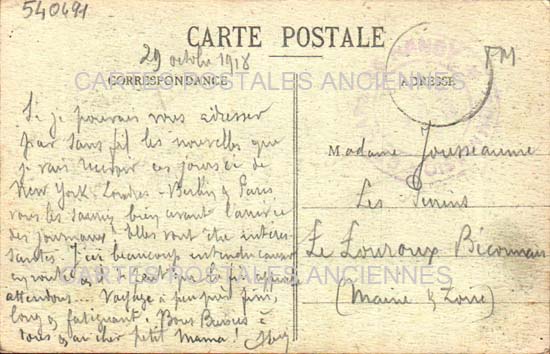 540691
CARTE POSTALE
29 octobre 1918
FM
CORRESPONDANCE
ADRESSE
CARTES POSTALES ANCIENNES
Si je pouvais vous adresser
par sans fil les nouvelles que
je vais recevoir ces jours-ci de
New York - Londres - Berlin & Paris
vous les sauriez bien avant l'arrivée
des journaux. Elles vont être intéres-
santes. J'ai beaucoup entendu causer
en route et
attendons... Voyage à peu près fini,
long & fatigant. Bons Baisers à
tous & au cher petit Mama!
Madame Jousseaume
Les
Le Louroux Béconnais
(Maine & Loire)
CARTES POSTALES ANCIENNES